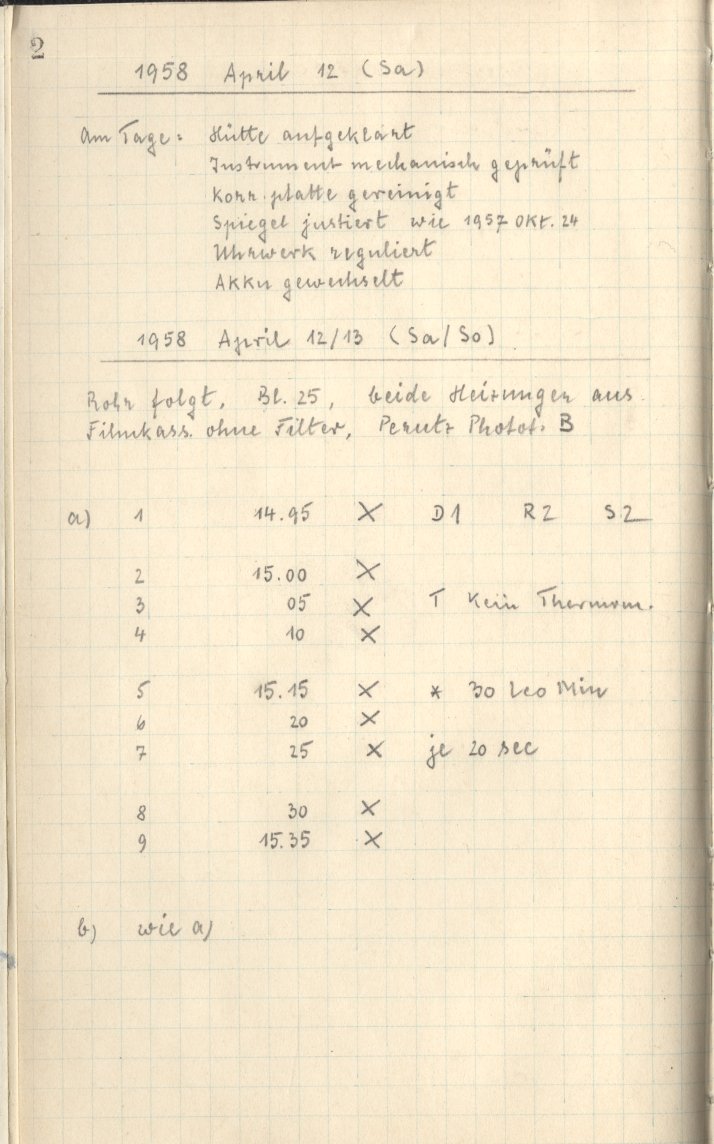 2
1958 April 12 (Sa)
Am Tage: Hütte aufgeklart
Instrument mechanisch geprüft
Korr. platte gereinigt
Spiegel justiert wie 1957 Okt. 24
Uhrwerk reguliert
Akku gewechselt
1958 April 12/13 (Sa/So)
Rohr folgt, Bl. 25, beide Heizungen aus
Filmkass. ohne Filter, Perutz Photot. B
a) 1 14.95 X D1 R2 S2
2 15.00 X
3 05 X T Kein Thermom.
4 10 X
5 15.15 X * 30 Leo Min
6 20 X
7 25 X je 20 sec
8 30 X
9 15.35 X
b) wie a)